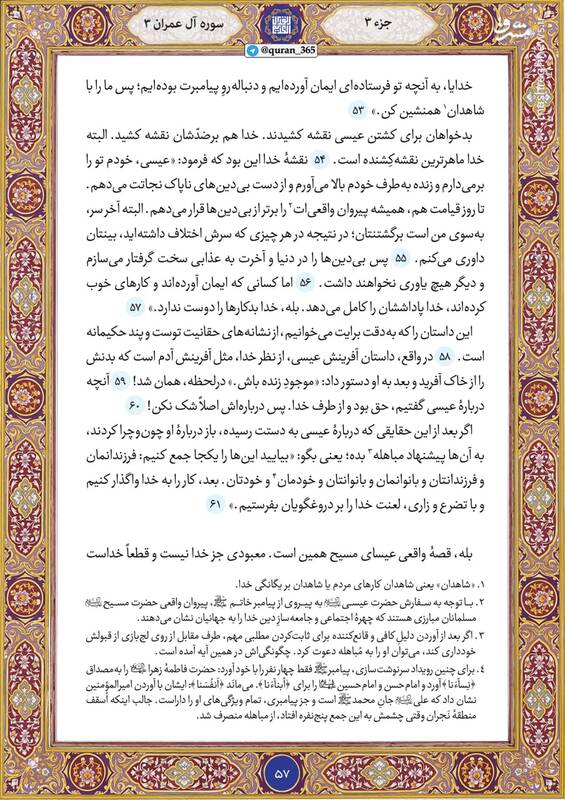 جزء ۳
سوره آل عمران ۳
@quran_365
مشرق
خدایا، به آنچه تو فرستاده‌ای ایمان آورده‌ایم و دنباله‌روِ پیامبرت بوده‌ایم؛ پس ما را با
شاهدان۱ همنشین کن.» ۵۳
بدخواهان برای کشتن عیسی نقشه کشیدند. خدا هم برضدّشان نقشه کشید. البته
خدا ماهرترین نقشه‌کِشنده است. ۵۴ نقشهٔ خدا این بود که فرمود: «عیسی، خودم تو را
برمی‌دارم و زنده به‌طرف خودم بالا می‌آورم و از دست بی‌دین‌های ناپاک نجاتت می‌دهم.
تا روز قیامت هم، همیشه پیروان واقعی‌ات۲ را برتر از بی‌دین‌ها قرار می‌دهم. البته آخر سر،
به‌سوی من است برگشتنتان؛ در نتیجه در هر چیزی که سرش اختلاف داشته‌اید، بینتان
داوری می‌کنم. ۵۵ پس بی‌دین‌ها را در دنیا و آخرت به عذابی سخت گرفتار می‌سازم
و دیگر هیچ یاوری نخواهند داشت. ۵۶ اما کسانی که ایمان آورده‌اند و کارهای خوب
کرده‌اند، خدا پاداششان را کامل می‌دهد. بله، خدا بدکارها را دوست ندارد.» ۵۷
این داستان را که به‌دقت برایت می‌خوانیم، از نشانه‌های حقانیت توست و پند حکیمانه
است. ۵۸ در واقع، داستان آفرینش عیسی، از نظر خدا، مثل آفرینش آدم است که بدنش
را از خاک آفرید و بعد به او دستور داد: «موجودِ زنده باش.» درلحظه، همان شد! ۵۹ آنچه
دربارهٔ عیسی گفتیم، حق بود و از طرف خدا. پس درباره‌اش اصلاً شک نکن! ۶۰
اگر بعد از این حقایقی که دربارهٔ عیسی به دستت رسیده، باز دربارهٔ او چون‌وچرا کردند،
به آن‌ها پیشنهاد مباهله۳ بده؛ یعنی بگو: «بیایید این‌ها را یکجا جمع کنیم: فرزندانمان
و فرزندانتان و بانوانمان و بانوانتان و خودمان۴ و خودتان. بعد، کار را به خدا واگذار کنیم
و با تضرع و زاری، لعنت خدا را بر دروغگویان بفرستیم.» ۶۱
بله، قصهٔ واقعی عیسای مسیح همین است. معبودی جز خدا نیست و قطعاً خداست
۱. «شاهدان» یعنی شاهدان کارهای مردم یا شاهدان بر یگانگی خدا.
۲. با توجه به سفارش حضرت عیسی به پیروی از پیامبر خاتم ﷺ، پیروان واقعی حضرت مسیح
مسلمانان مبارزی هستند که چهرهٔ اجتماعی و جامعه‌سازِ دین خدا را به جهانیان نشان می‌دهند.
۳. اگر بعد از آوردن دلیل کافی و قانع‌کننده برای ثابت‌کردن مطلبی مهم، طرف مقابل از روی لج‌بازی از قبولش
خودداری کند، می‌توان او را به مباهله دعوت کرد. چگونگی‌اش در همین آیه آمده است.
۴. برای چنین رویداد سرنوشت‌سازی، پیامبر ﷺ فقط چهار نفر را با خود آورد: حضرت فاطمهٔ زهرا را به‌مصداق
﴿نِساءَنا﴾ آورد و امام حسن و امام حسین را برای ﴿أَبناءَنا﴾. می‌ماند ﴿أَنفُسَنا﴾: ایشان با آوردن امیرالمؤمنین
نشان داد که علی جانِ محمد ﷺ است و جز پیامبری، تمام ویژگی‌های او را داراست. جالب اینکه اُسقف
منطقهٔ نَجران وقتی چشمش به این جمع پنج‌نفره افتاد، از مباهله منصرف شد.
۵۷